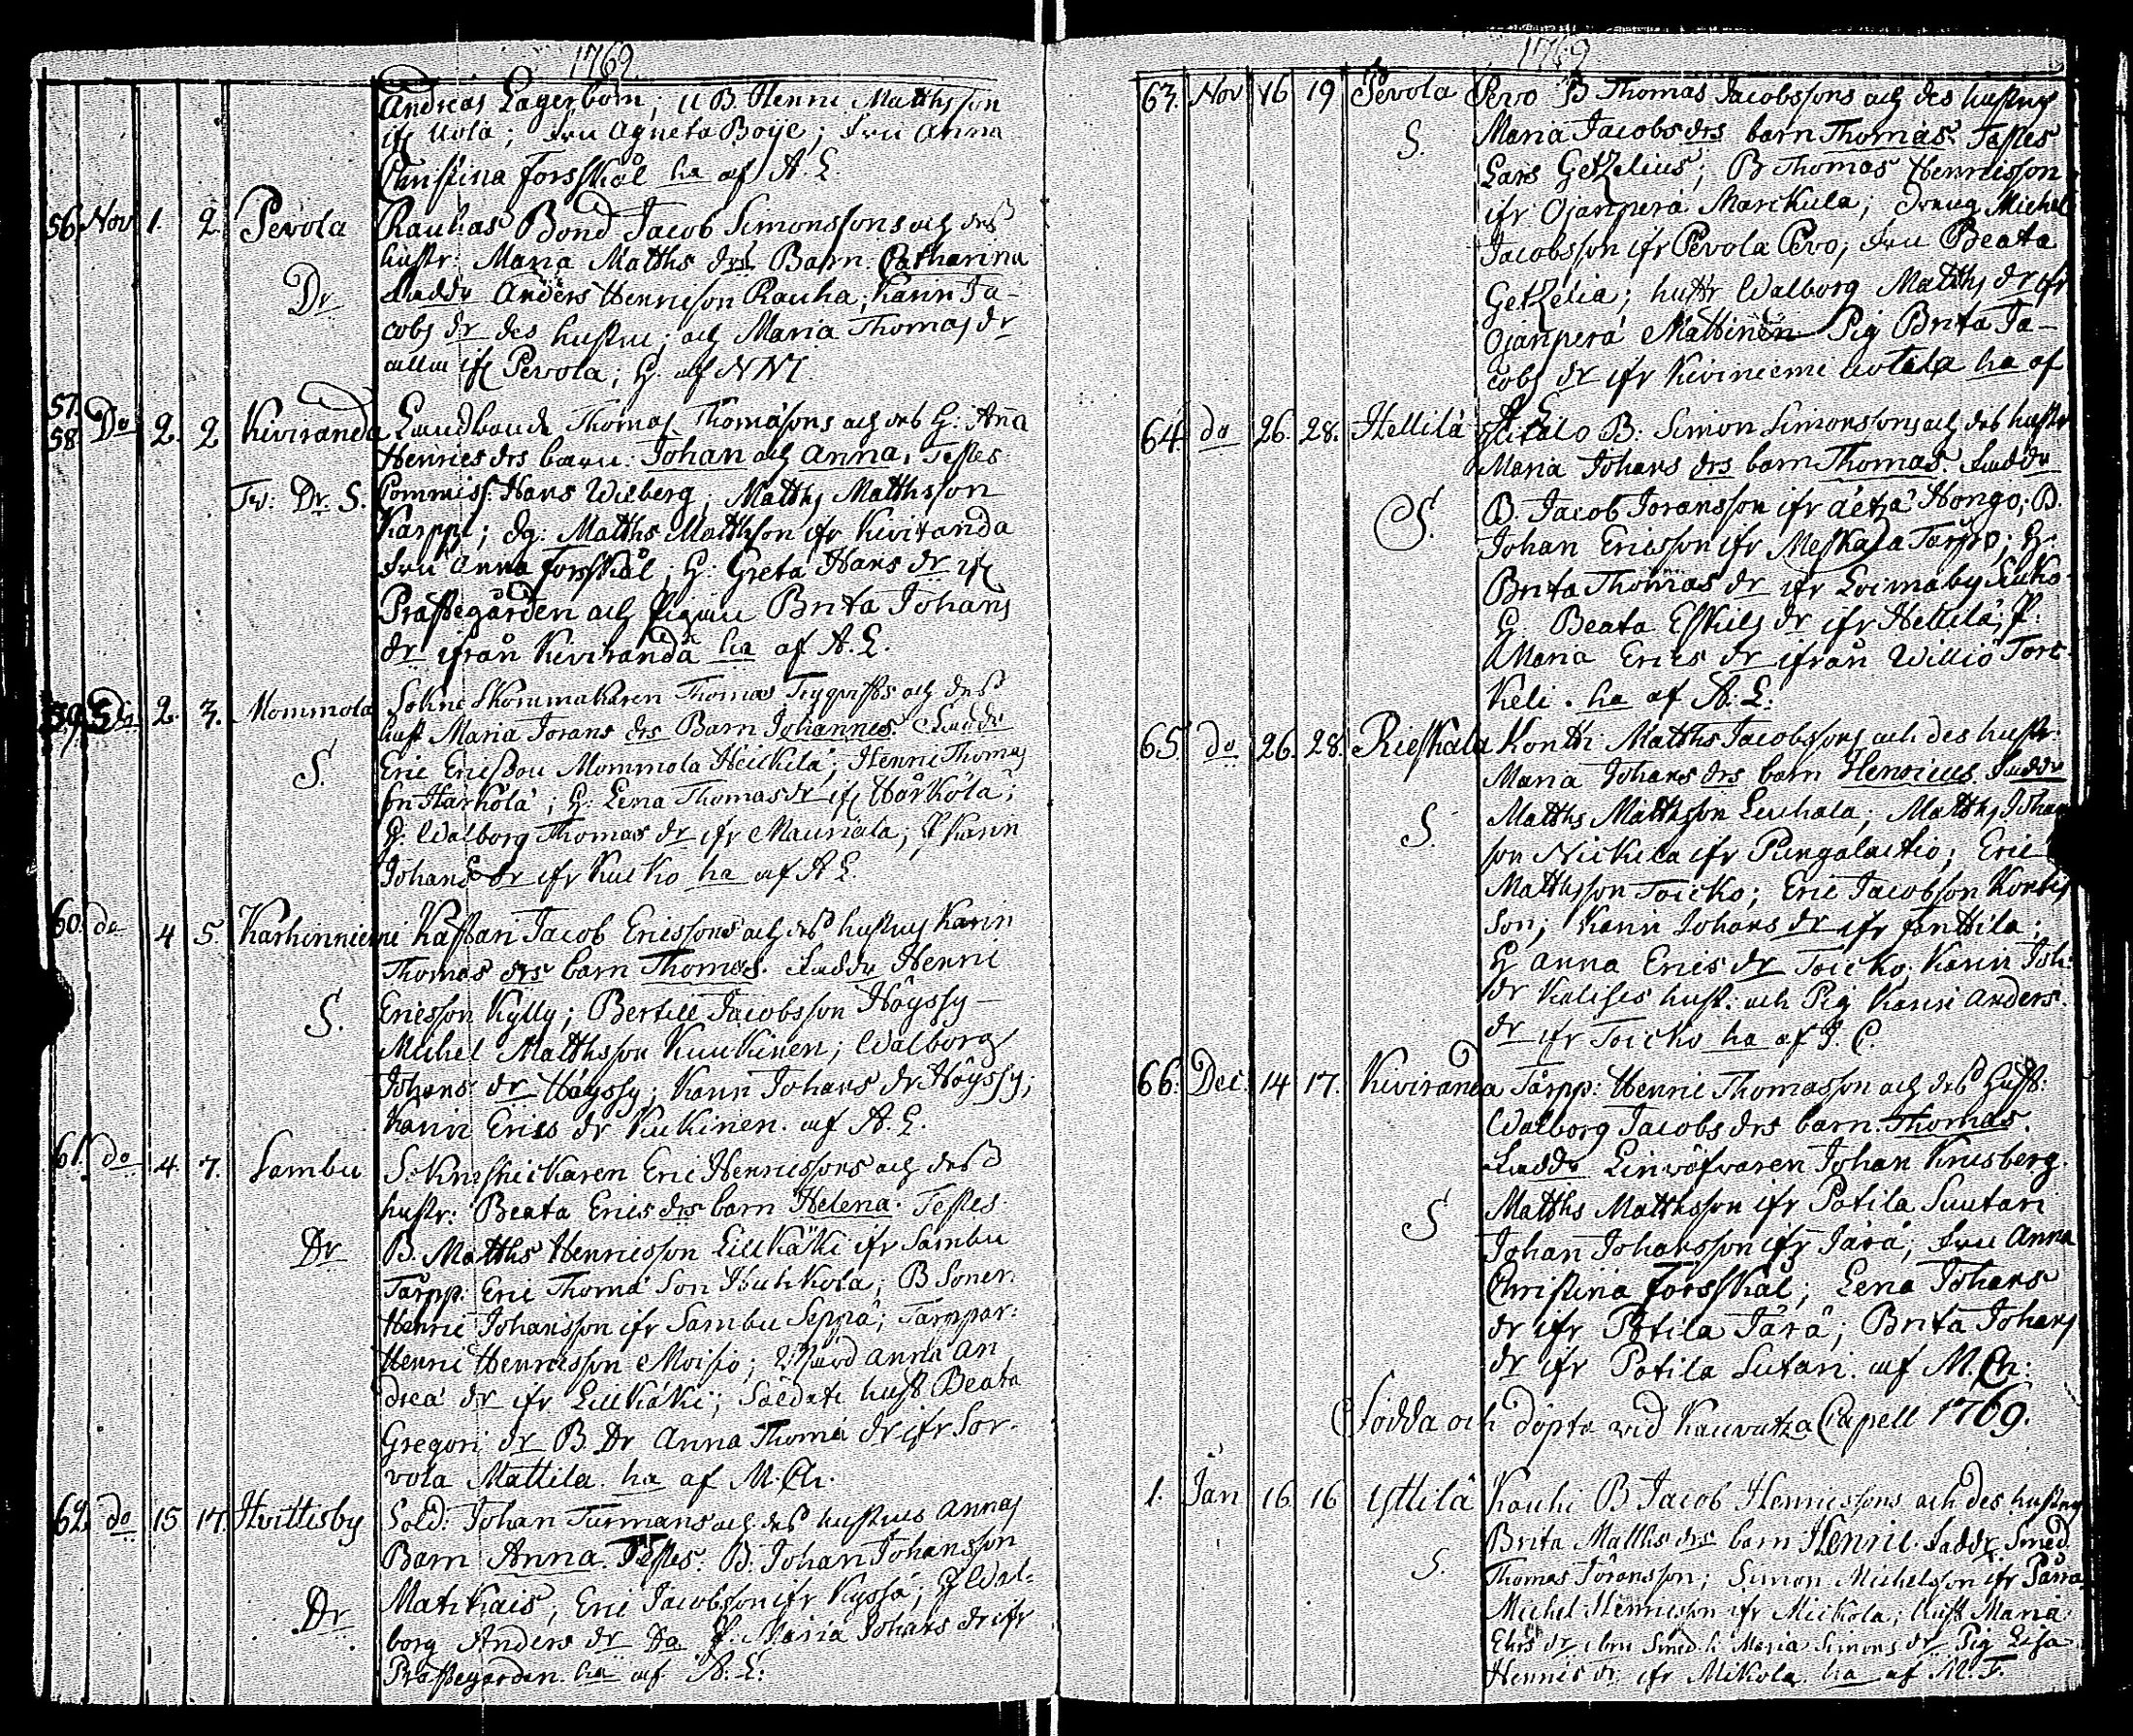 1769.
Andreas Lagerbom; U B. Henric Matthsson
ifr Uola; Fru Agneta Boije; Fru Anna
Christina Forsskål ha af A. L.
56. Nov 1. 2. Pevola Rauhas Bond Jacob Simonssons och des
hustr: Maria Matths drs Barn Catharina
Dr Faddr Anders Henricson Rauha; Karin Ja-
cobs dr des hustru; och Maria Thomas dr
alla ifr Pevola; G. af NNI
57. 58. Do 2. 2 Kiviranda Landbonde Thomas Thomasons och des H: Aña
Henrics drs barn: Johan och Anna. Testes
Tv: Dr. S. Commiss: Hans Wilberg; Matths Matthsson
Karppi; dg: Matths Matthson ifr Kiviranda
Fru Anna Forsskål; H: Greta Hans dr ifr
Prästegården och Pigan Brita Johans
dr ifrån Kiviranda ha af A. L.
59. do 2. 3. Mommola Sokne Skommakaren Thomas Tygqvists och des
hust Maria Jorans drs Barn Johannes. Faddr
Eric Ericsson Mommola Heickilä; Henric Thomas
S. son Härkölä; H: Lena Thomas dr ifr Härkölä;
H: Walborg Thomas dr ifr Mauriala; P Karin
Johans dr ifr Kuiko ha af A L.
60. do 4 5. Karhinniemi Kastari Jacob Ericssons och des hustrus Karin
Thomas drs barn Thomas. Faddr Henric
S. Ericsson Kylly; Bertill Jacobsson Höyssy
Michel Matthsson Kuukinen; Walborg
Johans dr Höyssy; Karin Johans dr Höyssy;
Karin Erics dr Kukinen. af A. L.
61. do 4. 7. Sambu S. Knifskickaren Eric Henricssons och des
hustr: Beata Erics drs barn Helena. Testes
Dr B. Matths Henricsson Lillkäki ifr Sambu
Tårpp: Eric Thomæ Son Huhkola; B Soner
Henric Johansson ifr Sambu Seppä; Tårppar:
Henric Henricsson Moisio; Anna An
dreæ dr ifr Lillkäki; Soldate hust Beata
Gregori dr B. Dr Anna Thomæ dr ifr Sor-
vola Mattila. ha af M. Ch.
62. do 15 17. Hvittisby Sold: Johan Turmans och des hustrus Annas
Barn Anna. Testes. B. Johan Johansson
Matikais; Eric Jacobsson ifr Kyssä; H Wal-
Dr borg Anders dr Do P. Maria Johans dr ifr
Prästegården. ha af A. L:
1769
63. Nov 16 19 Pevola Pevo B Thomas Jacobssons och des hustrus
S. Maria Jacobs drs barn Thomas. Testes
Lars Getzelius; B Thomas Henricsson
ifr Ojanperä Marckula; Dreng Michel
Jacobsson ifr Pevola Pevo; Fru Beata
Getzelia; hustr Walborg Matths dr ifr
Ojanperä Mattinen Pig Brita Ja-
cobs dr ifr Kiviniemi Uotila ha af
A L.
64. do 26. 28. Hellilä Ylitalo B: Simon Simonssons och des hustr
Maria Johans drs barn Thomas. Faddr
S. B. Jacob Joransson ifr Äetsä Hongo; B.
Johan Ericsson ifr Meskala Tarpo; H:
Brita Thomas dr ifr Loimaby Kuko
H. Beata Eskils dr ifr Hellilä; P.
Maria Erics dr ifrån Williö Tort-
Keli. ha af A. L:
65. do 26. 28. Rieskala Konthi Matths Jacobssons och des hustr.
Maria Johans drs barn Henricus Faddr
S. Matths Matthson Luuhala; Matths Johan
son Nickila ifr Pungalaitio; Eric
Matthsson Toicko; Eric Jacobsson Kontis
Son; Karin Johans dr ifr Fonttila;
H Anna Erics dr Toicko. Karin Joh:
dr Kalises hust. och Pig Karin Anders
dr ifr Toicko ha af J. C.
66. Dec. 14 17. Kiviranda Tårpp: Henric Thomasson och des hust:
Walborg Jacobs drs barn. Thomas.
Faddr Linväfvaren Johan Krusberg.
S Matths Matthsson ifr Potila Suutari
Johan Johansson ifr Järä; Fru Anna
Christina Forsskål; Lena Johans
dr ifr Potila Järä; Brita Johans
dr ifr Potila Sutari. af M. Ch:
Födda och döpta vid Kauvatza Capell 1769.
1. Jan 16 16 Yttilä Kauhi B Jacob Henricssons och des hustrus
Brita Matths drs barn Henric. Faddr. Smed.
S. Thomas Jöransson; Simon Michelsson ifr Pärra
Michel Henricson ifr Mickola; hust Maria
Ehrs dr ibm Smed h Maria Simons dr Pig Lisa
Henrics dr ifr Mikola. ha af M. T.